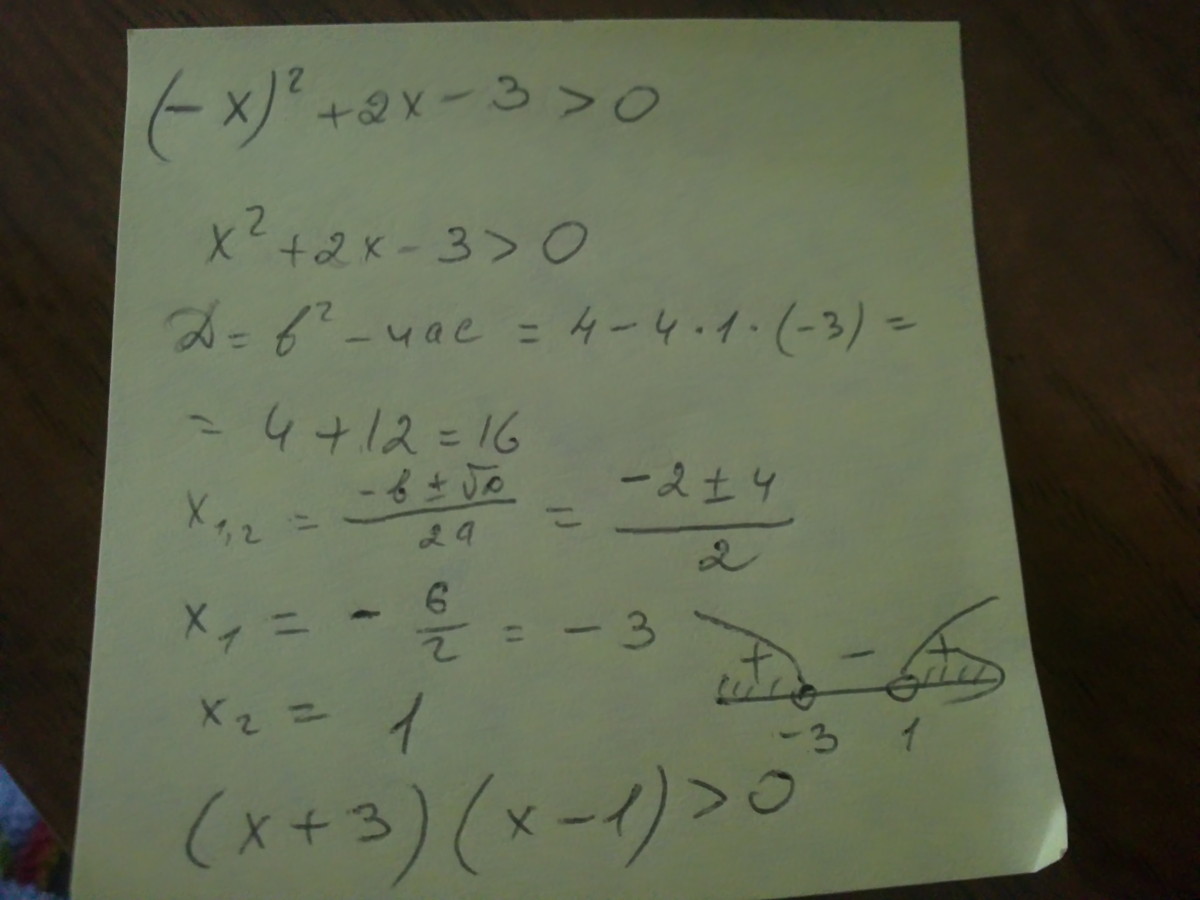 (-x)² + 2x - 3 > 0
x² + 2x - 3 > 0
D = b² - 4ac = 4 - 4 · 1 · (-3) =
= 4 + 12 = 16
x₁,₂ = (-b ± √D)/(2a) = (-2 ± 4)/2
x₁ = - 6/2 = -3
+ - +
x₂ = 1
-3 1
(x + 3)(x - 1) > 0